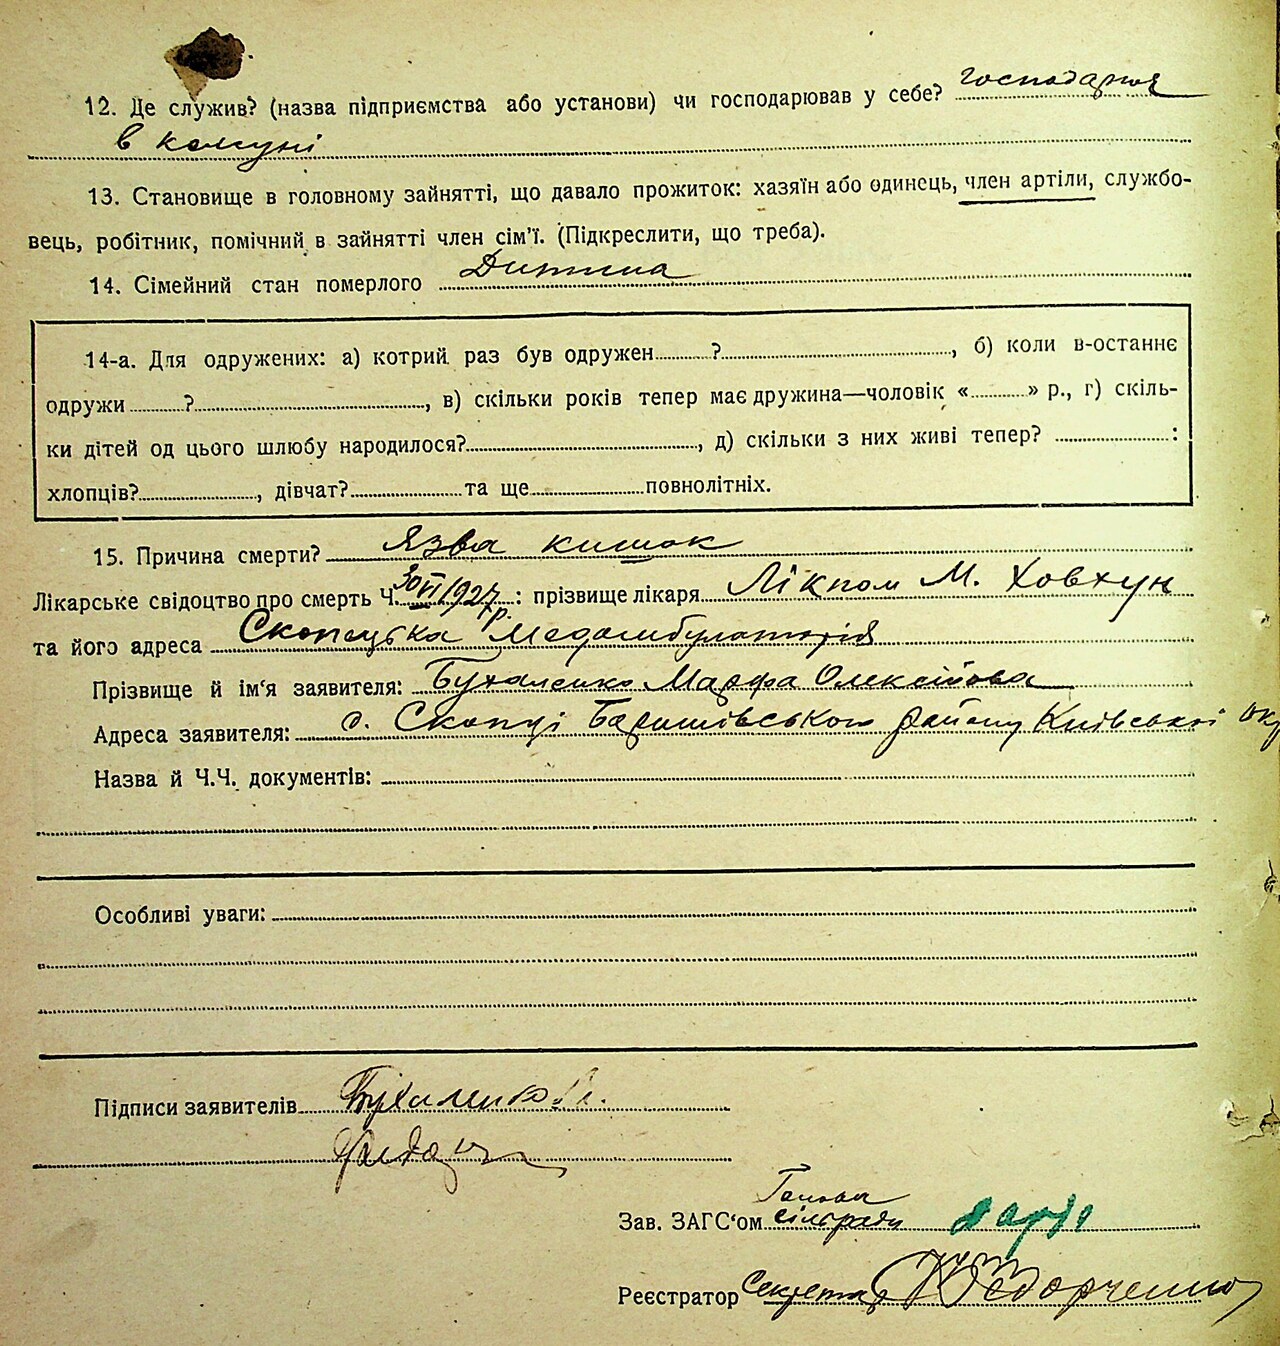 12. Де служив? (назва підприємства або установи) чи господарював у себе? господарюв
в комуні
13. Становище в головному зайнятті, що давало прожиток: хазяїн або одинець, член артіли, службо-
вець, робітник, помічний в зайнятті член сім'ї. (Підкреслити, що треба).
14. Сімейний стан померлого Дитина
14-а. Для одружених: а) котрий раз був одружен ? , б) коли в-останнє
одружи ? , в) скільки років тепер має дружина—чоловік « » р., г) скіль-
ки дітей од цього шлюбу народилося? , д) скільки з них живі тепер? :
хлопців? , дівчат? та ще повнолітніх.
15. Причина смерти? Язва кишок
Лікарське свідоцтво про смерть Ч. 30/VI 1927 р. : прізвище лікаря Лікпом М. Ховхун
та його адреса Скопецька Медамбулаторія
Прізвище й ім'я заявителя: Бухаленко Марфа Олексійова
Адреса заявителя: с. Скопці Баришівського району Київської окр
Назва й Ч.Ч. документів:
Особливі уваги:
Підписи заявителів Бухаленко
Зав. ЗАГС'ом Голова
сільради
Реєстратор Секретар Федорченко